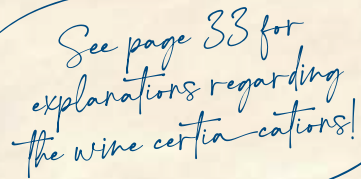 See page 33 for
explanations regarding
the wine certia–cations!